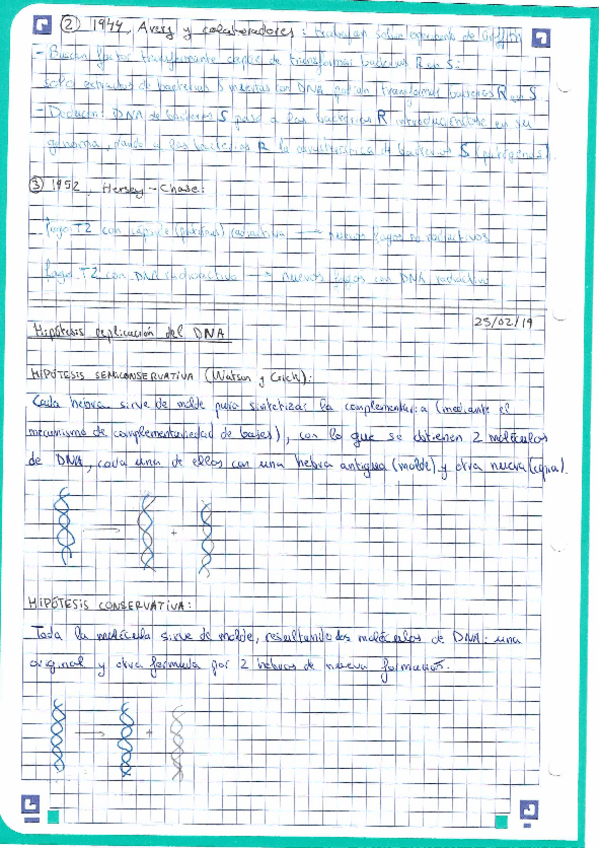 ② 1944, Avery y colaboradores: trabajan sobre experimento de Griffith
- Buscan factor transformante capaz de transformar bacterias R en S:
solo extractos de bacterias S muertas con DNA podían transformar bacterias R en S
- Deducen: DNA de bacterias S pasó a las bacterias R introduciéndose en su
genoma, dando a las bacterias R la característica de bacterias S (patógenas).
③ 1952, Hersey-Chase:
fago T2 con cápside (proteínas) radiactiva → nuevos fagos no radiactivos
fago T2 con DNA radioactivo → nuevos fagos con DNA radiactivo
25/02/19
Hipótesis replicación del DNA
HIPÓTESIS SEMICONSERVATIVA (Watson y Crick):
Cada hebra sirve de molde para sintetizar la complementaria (mediante el
mecanismo de complementariedad de bases), con lo que se obtienen 2 moléculas
de DNA, cada una de ellas con una hebra antigua (molde) y otra nueva (copia).
→ +
HIPÓTESIS CONSERVATIVA:
Toda la molécula sirve de molde, resultando dos moléculas de DNA: una
original y otra formada por 2 hebras de nueva formación.
→ +